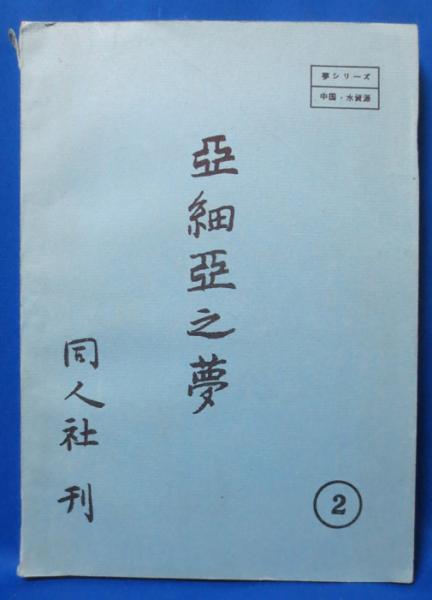 夢シリーズ
中国・水資源
亞細亞之夢
同人社 刊
2